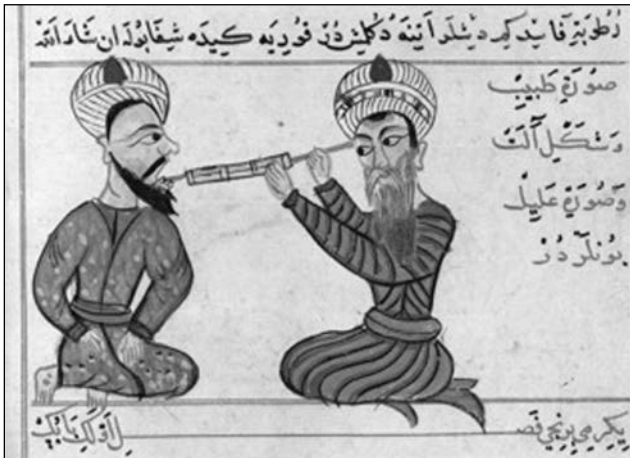 رُطُوبَتِ فَاسِد كِم دِشْلَر اَتِنَه دُكُلْمِش دُرْ قُورِيَه كِيدَه شِفَا بُولَه اِن شَاءَ اللّٰه
صُورَةِ طَبِيبْ
وَشَكْلِ آلَتْ
وَصُورَةِ عَلِيلْ
بُونْلَرْ دُرْ
يِكِرْمِي بِرِنْجِي فَصـل اَوَّلْكِ بَابُكْ